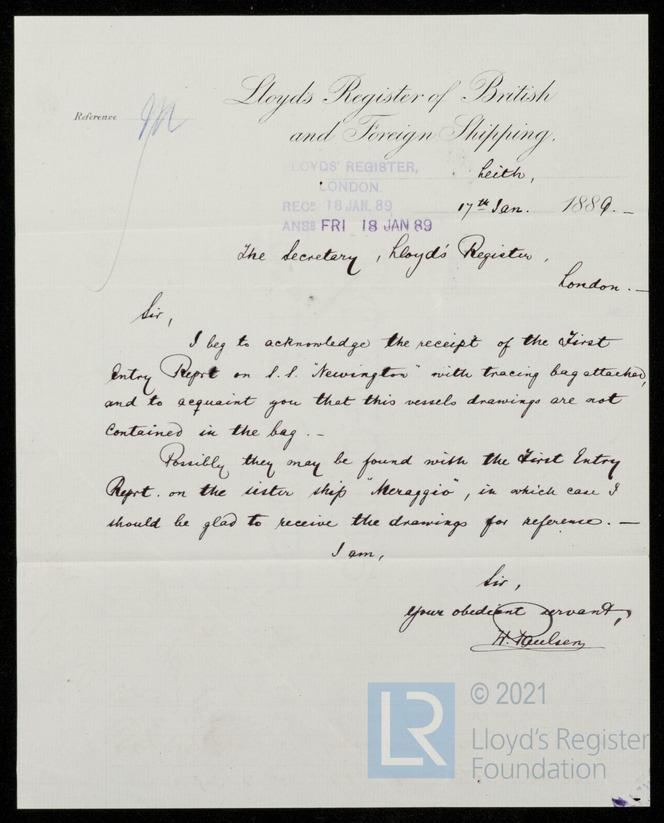 Lloyds Register of British
and Foreign Shipping.
Reference
LLOYDS' REGISTER,
LONDON.
REC? 18 JAN. 89
ANS? FRI 18 JAN 89
Leith,
17th Jan. 1889. —
The Secretary, Lloyd's Register,
London. —
Sir,
I beg to acknowledge the receipt of the First
Entry Reprt on S.S. "Newington" with tracing bag attached,
and to acquaint you that this vessels drawings are not
contained in the bag. —
Possibly they may be found with the First Entry
Reprt. on the sister ship "Meraggio", in which case I
should be glad to receive the drawings for reference. —
I am,
Sir,
Your obedient servant,
H. Paulsen
© 2021
LR
Lloyd's Register
Foundation